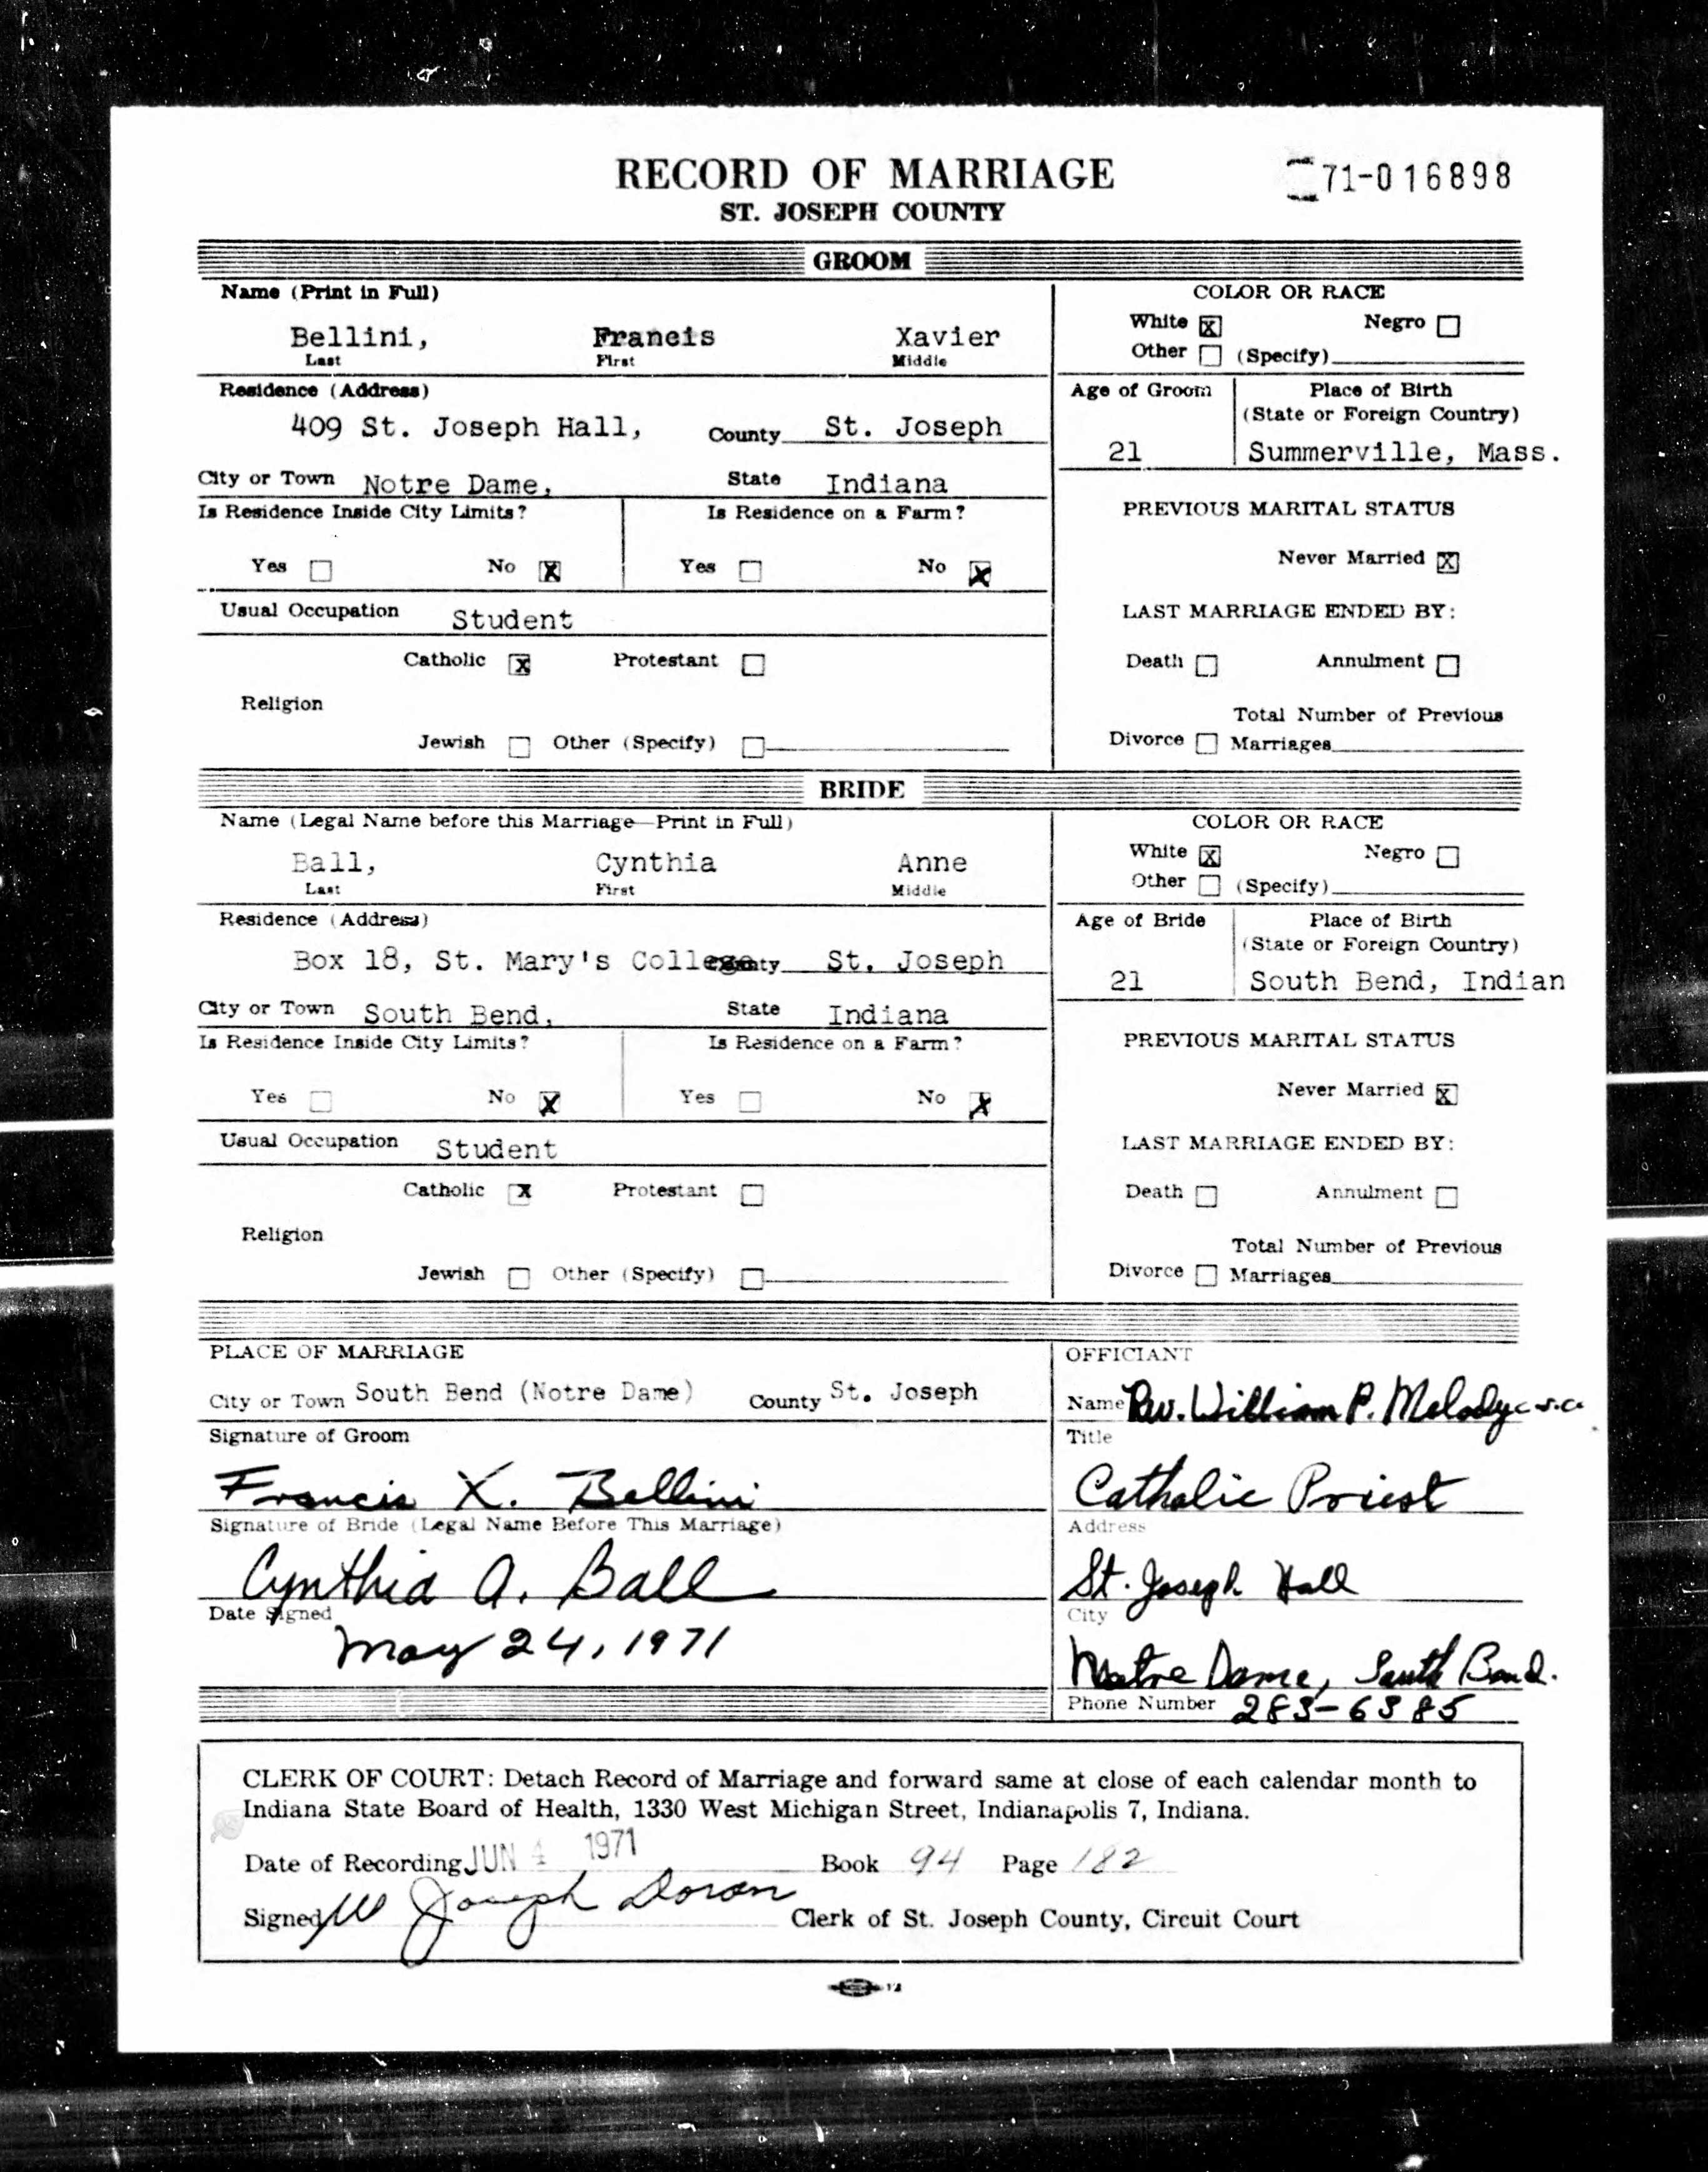 RECORD OF MARRIAGE
71-016898
ST. JOSEPH COUNTY
GROOM
Name (Print in Full)
COLOR OR RACE
Bellini, Francis Xavier
White X Negro
Last First Middle
Other (Specify)
Residence (Address)
Age of Groom Place of Birth
(State or Foreign Country)
409 St. Joseph Hall, County St. Joseph
21 Summerville, Mass.
City or Town Notre Dame, State Indiana
Is Residence Inside City Limits? Is Residence on a Farm?
PREVIOUS MARITAL STATUS
Yes No X Yes No X
Never Married X
Usual Occupation Student
LAST MARRIAGE ENDED BY:
Catholic X Protestant
Death Annulment
Religion
Total Number of Previous
Jewish Other (Specify)
Divorce Marriages
BRIDE
Name (Legal Name before this Marriage—Print in Full)
COLOR OR RACE
Ball, Cynthia Anne
White X Negro
Last First Middle
Other (Specify)
Residence (Address)
Age of Bride Place of Birth
(State or Foreign Country)
Box 18, St. Mary's College St. Joseph
21 South Bend, Indian
City or Town South Bend, State Indiana
Is Residence Inside City Limits? Is Residence on a Farm?
PREVIOUS MARITAL STATUS
Yes No X Yes No X
Never Married X
Usual Occupation Student
LAST MARRIAGE ENDED BY:
Catholic X Protestant
Death Annulment
Religion
Total Number of Previous
Jewish Other (Specify)
Divorce Marriages
PLACE OF MARRIAGE
City or Town South Bend (Notre Dame) County St. Joseph
Signature of Groom
Francis X. Bellini
Signature of Bride (Legal Name Before This Marriage)
Cynthia A. Ball
Date Signed
May 24, 1971
OFFICIANT
Name Rev. William P. Melody c.s.c.
Title
Catholic Priest
Address
St. Joseph Hall
City
Notre Dame, South Bend.
Phone Number 283-6385
CLERK OF COURT: Detach Record of Marriage and forward same at close of each calendar month to
Indiana State Board of Health, 1330 West Michigan Street, Indianapolis 7, Indiana.
Date of Recording JUN 4 1971 Book 94 Page 182
Signed W Joseph Doran Clerk of St. Joseph County, Circuit Court